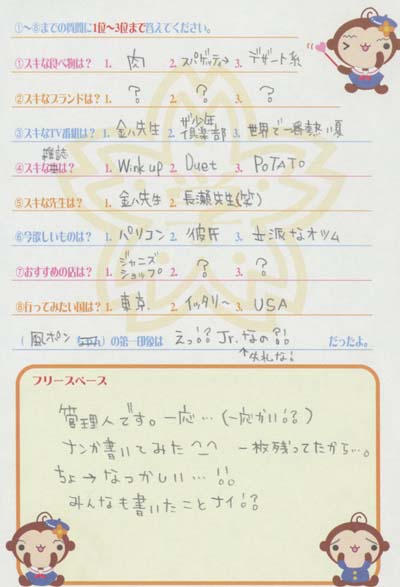 ①〜⑧までの質問に1位〜3位まで答えてください。
①スキな食べ物は? 1. 肉 2. スパゲッティ→ 3. デザート系
②スキなブランドは? 1. ? 2. ? 3. ?
③スキなTV番組は? 1. 金八先生 2. ザ少年倶楽部 3. 世界で一番熱い夏
雑誌
④スキな は? 1. Wink up 2. Duet 3. POTATO
⑤スキな先生は? 1. 金八先生 2. 長瀬先生(笑)
⑥今欲しいものは? 1. パソコン 2. 彼氏 3. 立派なオツム
⑦おすすめの店は? 1. ジャニズショップ 2. ? 3. ?
⑧行ってみたい国は? 1. 東京. 2. イッタリ〜 3. USA
( 風ポン )の第一印象は えっ!?? Jr.なの?! だったよ。
↑失礼な!
フリースペース
管理人です。一応…(一応かい!?)
ナンか書いてみた^^ 一枚残ってたから…。
ちょ→なつかしい…!!
みんなも書いたことナイ!?